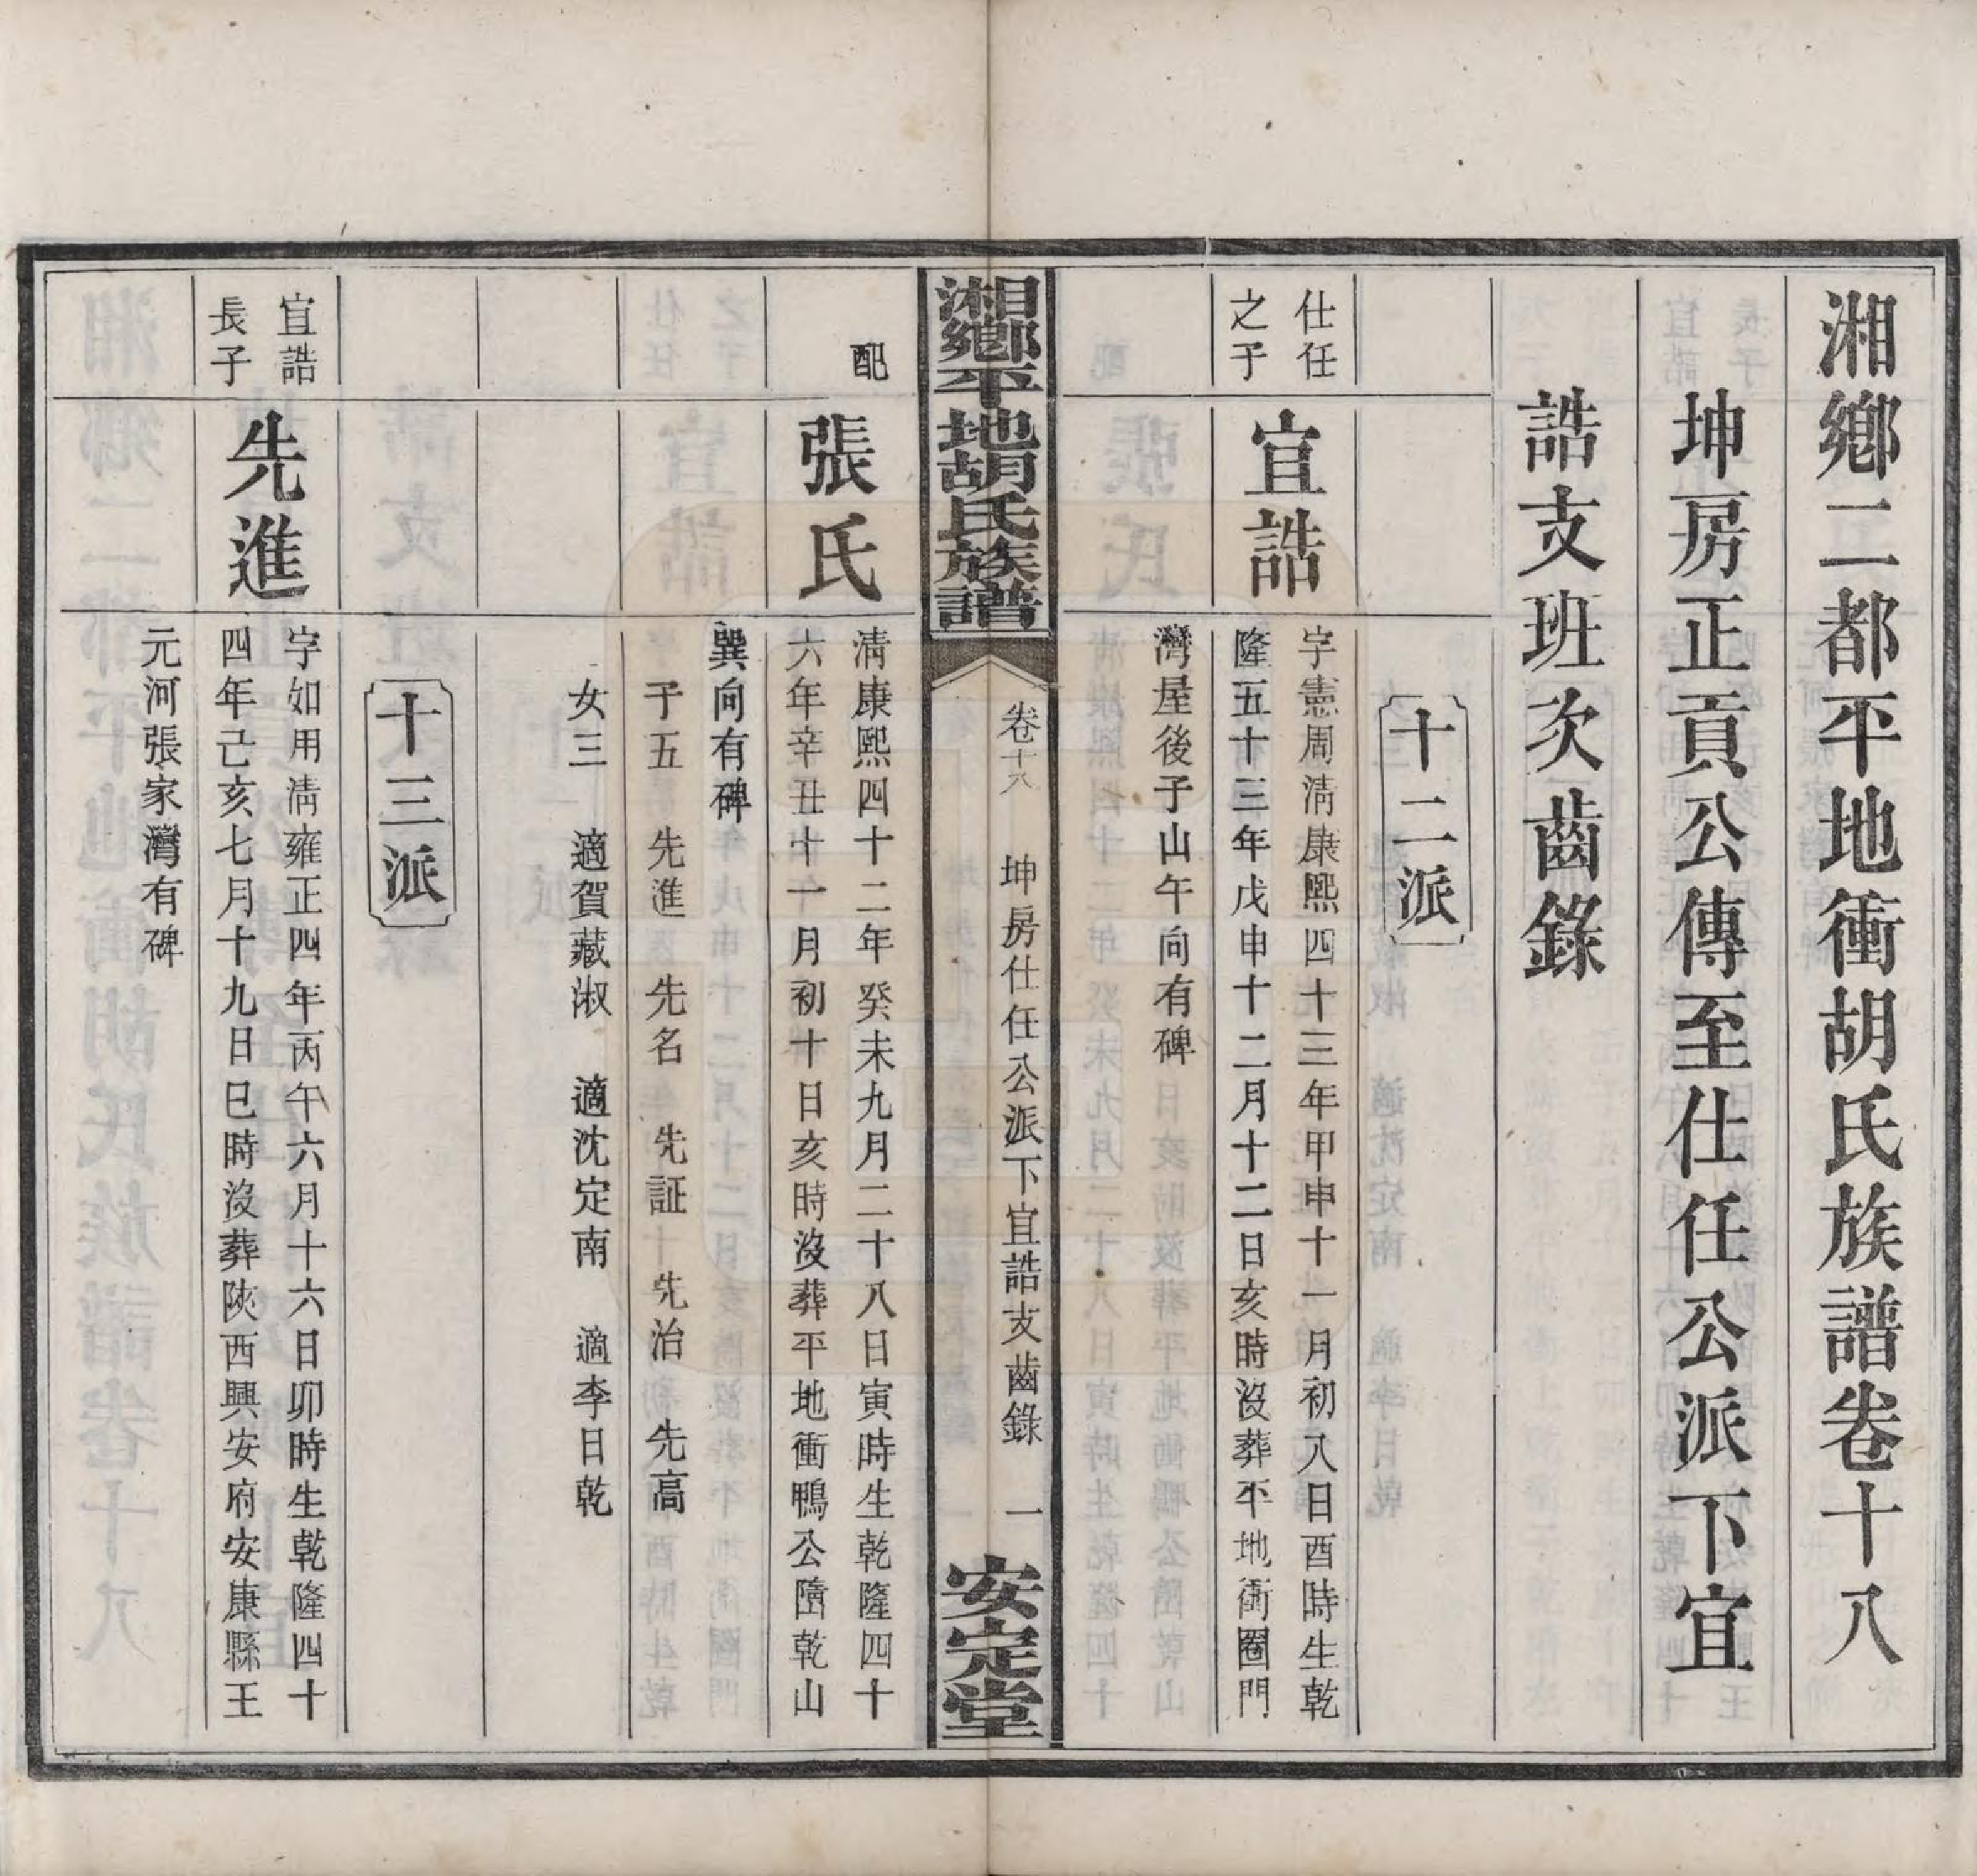 湘鄉二都平地衝胡氏族譜卷十八
坤房正貢公傳至仕任公派下宜
誥支班次齒錄
十二派
仕任
之子
宜誥
字憲周清康熙四十三年甲申十一月初八日酉時生乾
隆五十三年戊申十二月十二日亥時沒葬平地衝圈門
灣屋後子山午向有碑
湘鄉平地胡氏族譜
卷十八
坤房仕任公派下宜誥支齒錄
一
安定堂
配
張氏
清康熙四十二年癸未九月二十八日寅時生乾隆四十
六年辛丑十一月初十日亥時沒葬平地衝鴨公墤乾山
巽向有碑
子五 先進 先名 先証 先治 先高
女三 適賀藏淑 適沈定南 適李日乾
十三派
宜誥
長子
先進
字如用清雍正四年丙午六月十六日卯時生乾隆四十
四年己亥七月十九日巳時沒葬陝西興安府安康縣王
元河張家灣有碑